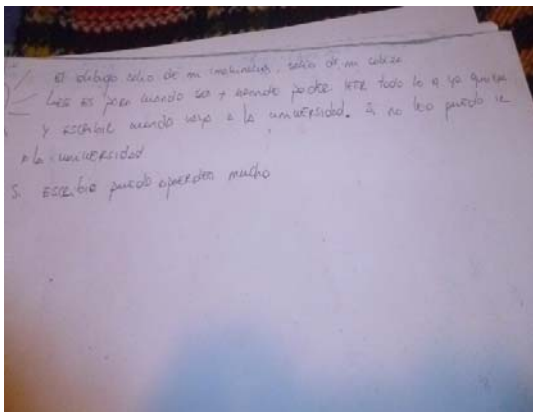 El dibujo salio de mi imaginacion, salio de mi cabeza
Leer es para cuando sea + grande poder leer todo lo q yo quiera
Y escribir cuando vaya a la universidad. Si no leo puedo ir
a la universidad
Si escribo puedo aprender mucho